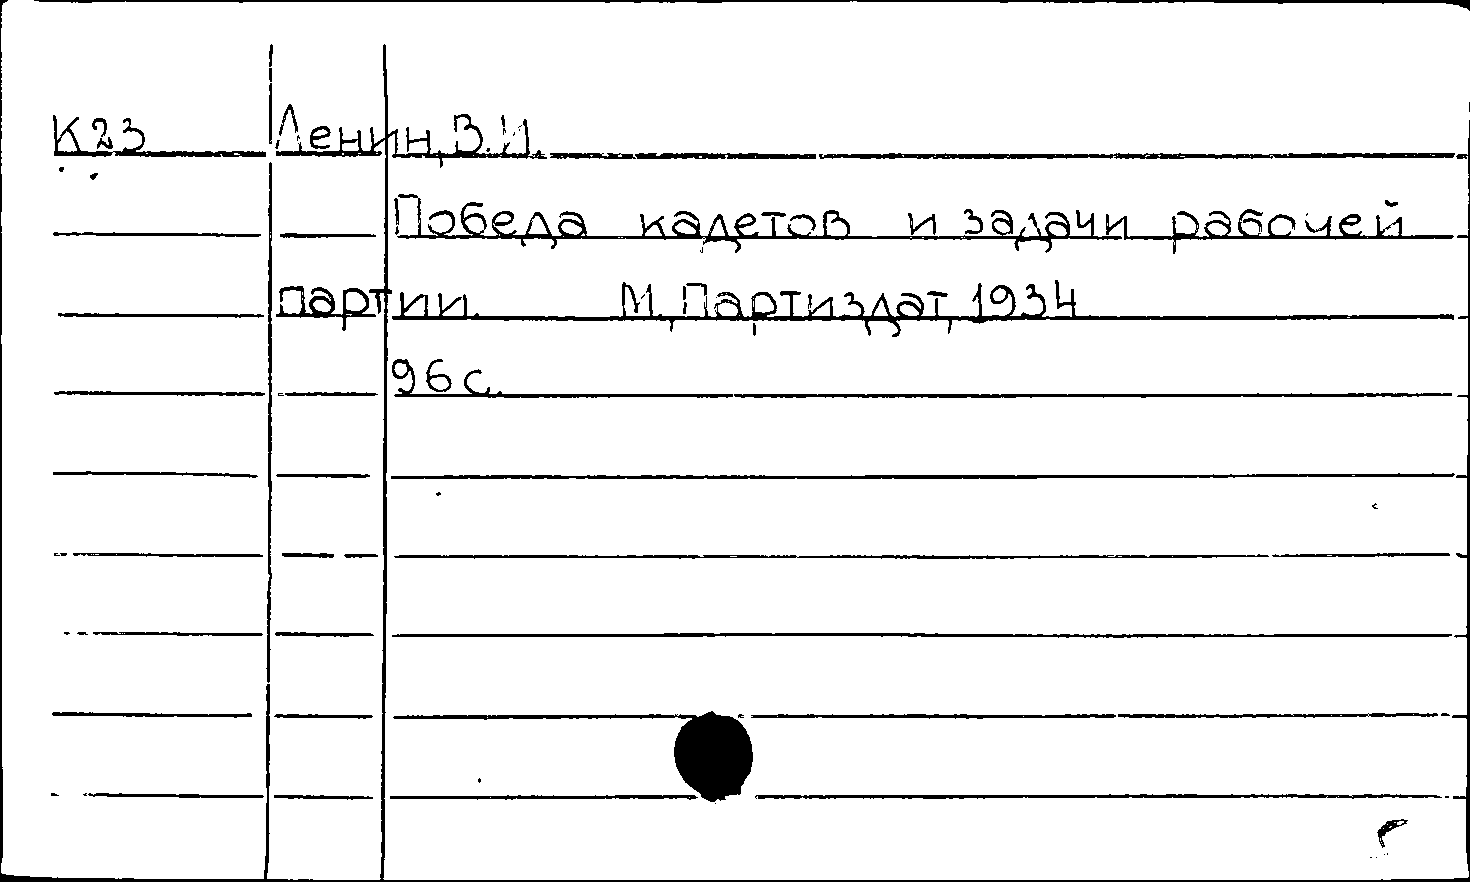 К23 Ленин, В.И.
Победа кадетов и задачи рабочей
партии. М., Партиздат, 1934
96 с.